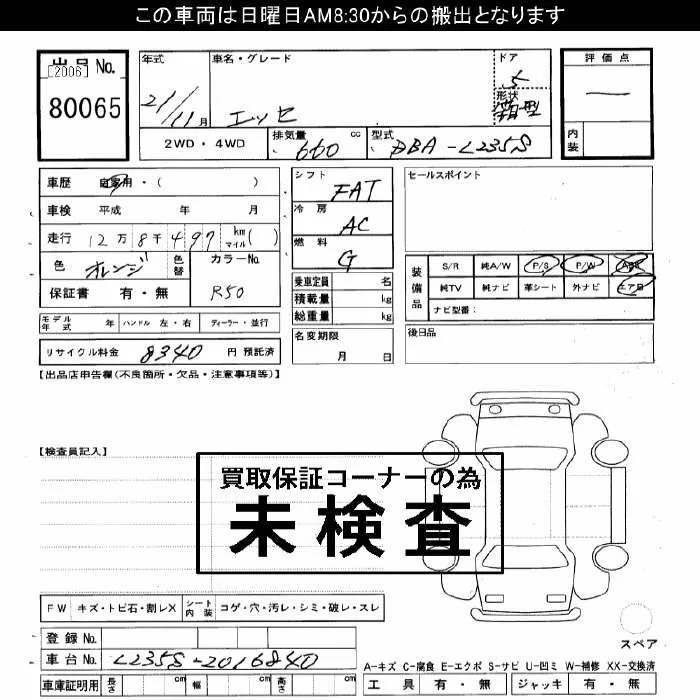 この車両は日曜日AM8:30からの搬出となります
出品No. [2006] 80065
年式 21/11月
車名・グレード エッセ
ドア 5
形状 箱型
評価点 —
内装
2WD・4WD
排気量 660 cc
型式 DBA-L235S
車歴 自家用・( )
車検 平成 年 月
走行 12万8千497 km マイル( )
色 オレンジ 色替 カラーNo. R50
保証書 有・無
シフト FAT
冷房 AC
燃料 G
乗車定員 名
積載量 kg
総重量 kg
セールスポイント
装備品 S/R 純A/W P/S P/W ABS
純TV 純ナビ 革シート 外ナビ エアB
ナビ型番:
モデル年式 年 ハンドル 左・右 ディーラー・並行
リサイクル料金 8340 円 預託済
名変期限 月 日
後日品
【出品店申告欄(不良箇所・欠品・注意事項等)】
【検査員記入】
買取保証コーナーの為
未検査
FW キズ・トビ石・割レX シート内装 コゲ・穴・汚レ・シミ・破レ・スレ
登録No.
車台No. L235S-2016840
車庫証明用 長さ cm 幅 cm 高さ cm
スペア
A-キズ C-腐食 E-エクボ S-サビ U-凹ミ W-補修 XX-交換済
工具 有・無 ジャッキ 有・無